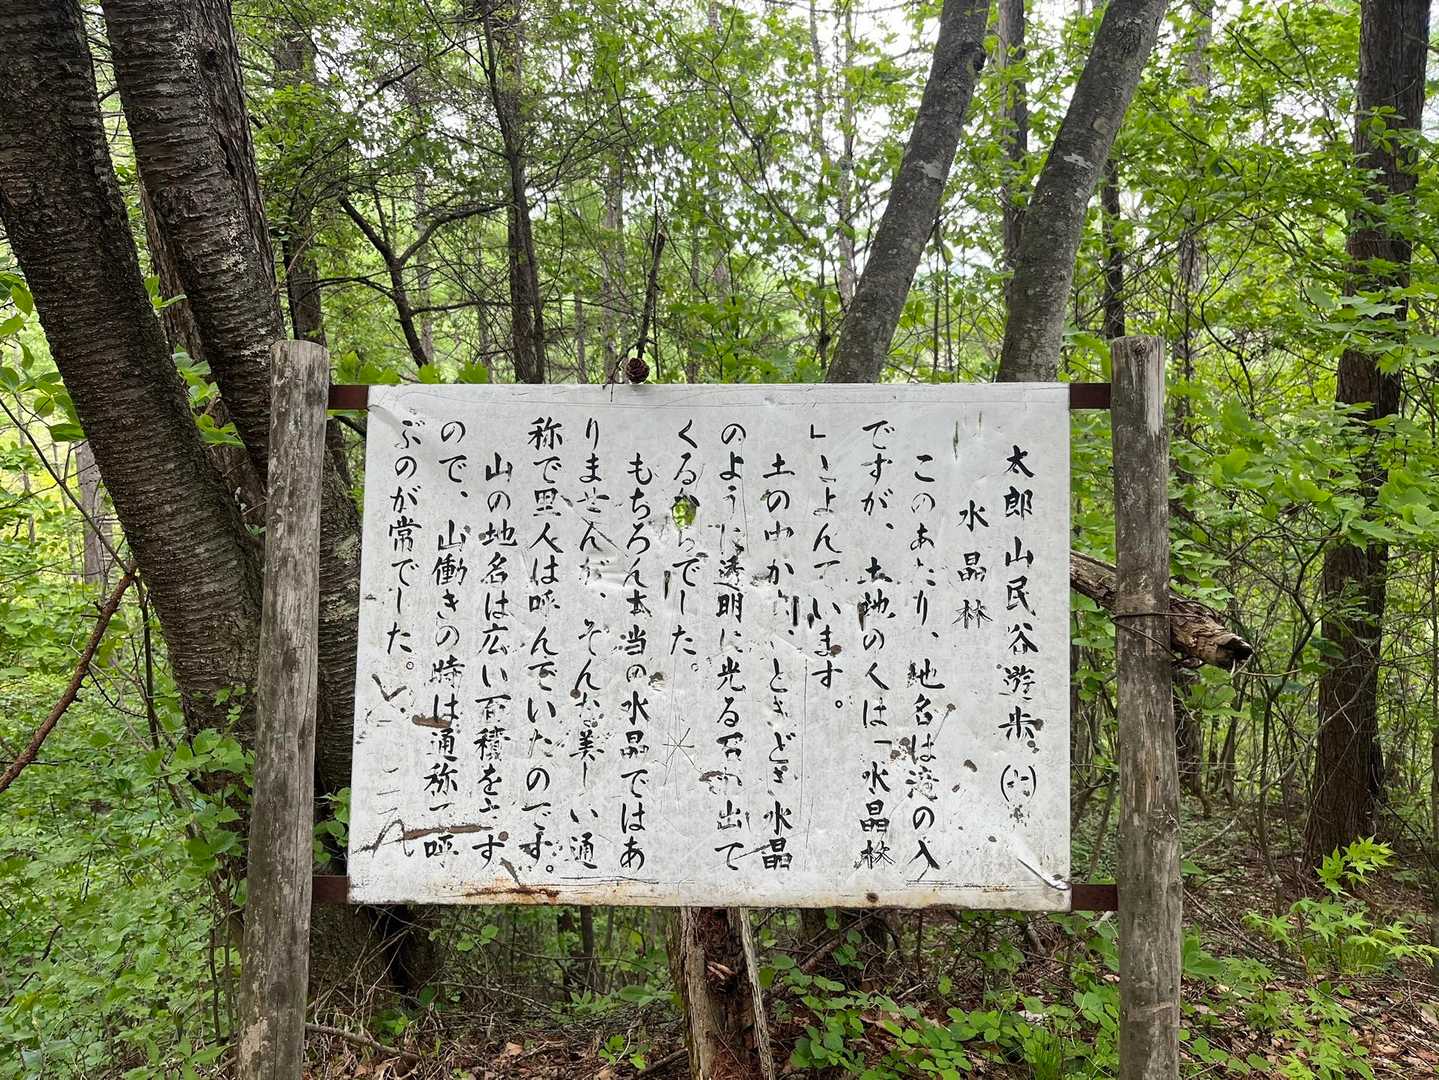 太郎山民谷遊歩
水晶林
このあたり、地名は滝の入
ですが、土地のくは「水晶林
」とよんでいます。
土の中から、ときどき水晶
のように透明に光る石が出て
くるからでした。
もちろん本当の水晶ではあ
りませんが、そんな美しい通
称で里人は呼んでいたのです。
山の地名は広い面積をさす
ので、山働きの時は通称で呼
ぶのが常でした。